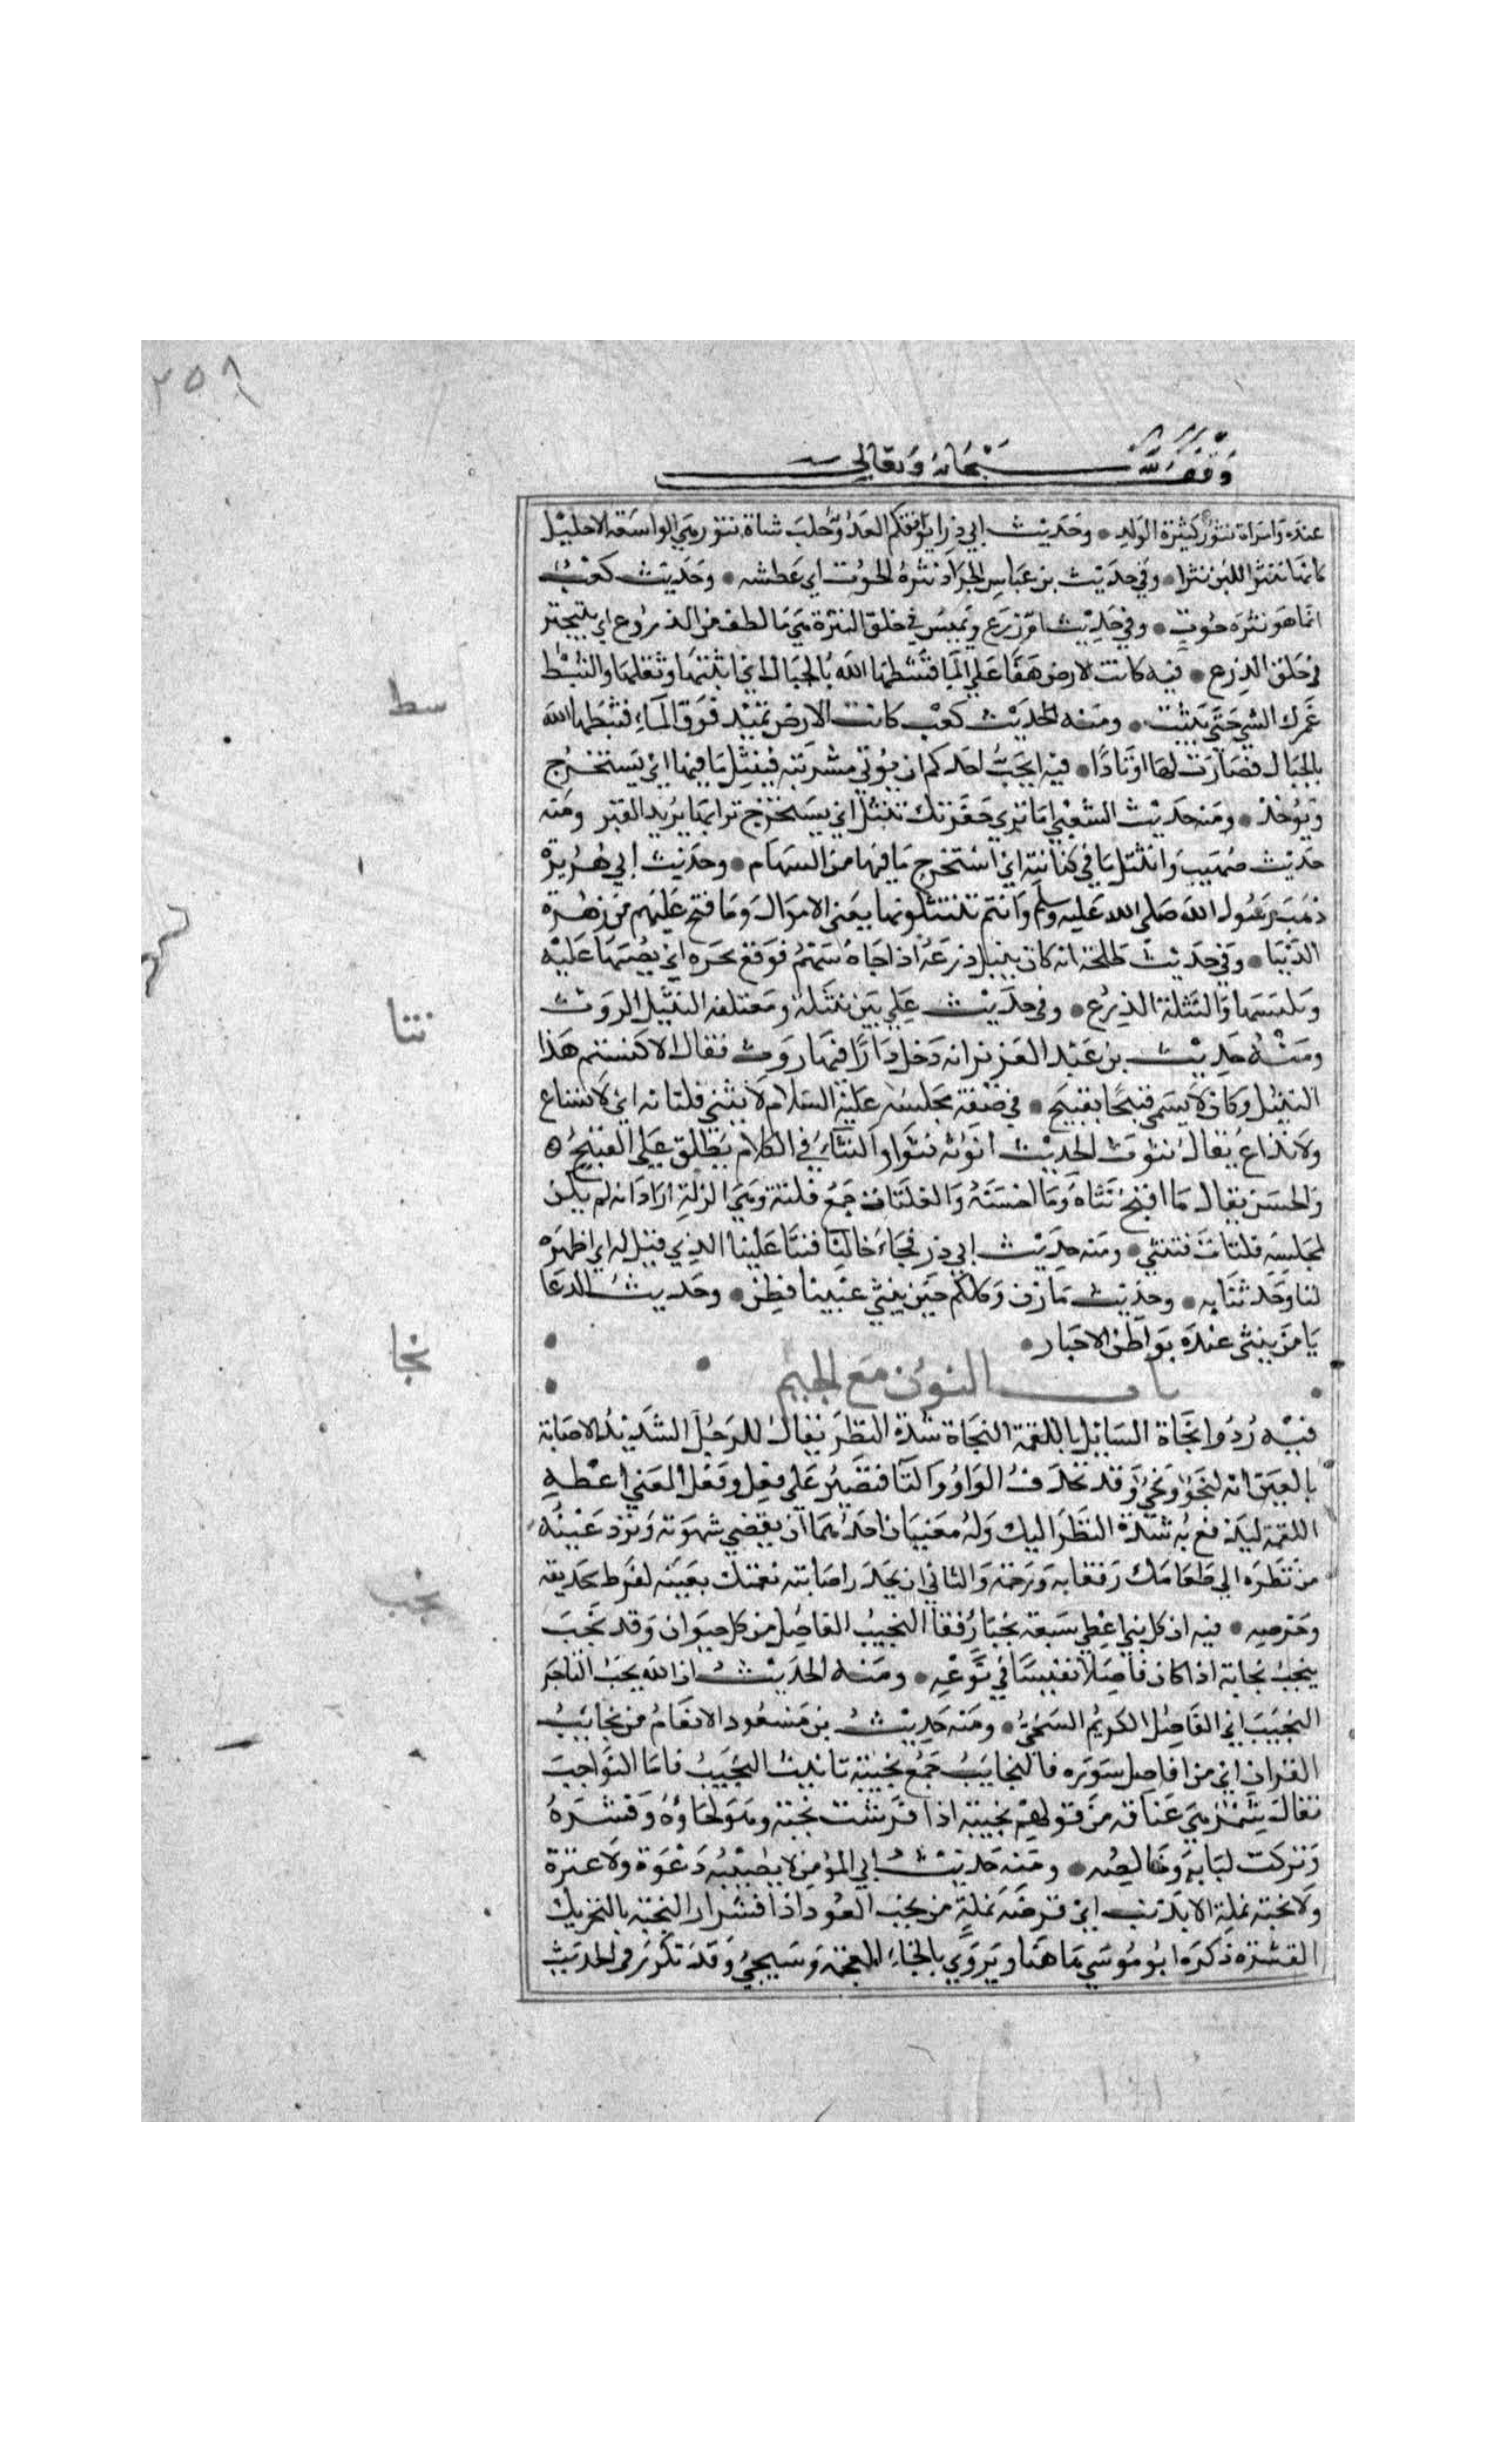 ٢٥٨
وقف لله سبحانه وتعالى
عنده وامراة نثور كثيرة الولد • وحديث ابي ذر ايوافقكم العدو حلب شاة نثور هي الواسعة الاحليل
كانها تنثر اللبن نثرا • وفي حديث بن عباس الجراد نثرة الحوت اي عطسته • وحديث كعب
انما هو نثرة حوت • وفي حديث ام زرع ويميس في حلق النثرة هي ما لطف من الدروع اي يتبختر
في حلق الدرع • فيه كانت الارض هفا على الما فنشطها الله بالجبال اي اثبتها وثقلها والنشط
غمرك الشي حتى يثبت • ومنه الحديث كعب كانت الارض تميد فوق الماء فنثطها الله
بالجبال فصارت لها اوتادا • فيه ايحب احدكم ان يؤتى مشربته فينثل ما فيها اي يستخرج
ويؤخذ • ومنه حديث الشعبي اما ترى حفرتك تنثل اي يستخرج ترابها يريد القبر ومنه
حديث صهيب وانتثل ما في كنانته اي استخرج ما فيها من السهام • وحديث ابي هريرة
ذهب رسول الله صلى الله عليه وسلم وانتم تنتثلونها يعني الاموال وما فتح عليهم من زهرة
الدنيا • وفي حديث طلحة انه كان ينثل درعه اذ اجاه سهم فوقع نحره اي يصبها عليه
ويلبسها والنثلة الدرع • وفي حديث علي بين نثيله ومعتلفه النثيل الروث
ومنه حديث بن عبد العزيز انه دخل دارا فيها روث فقال الا كنستم هذا
النثيل وكان لا يسمي قبيحا بقبيح • في صفة مجلسه عليه السلام لا تنثى فلتاته اي لا تشاع
ولا تذاع يقال نثوت الحديث انوثه نثوا والنثاء في الكلام يطلق على القبيح
والحسن يقال ما اقبح نثاه وما احسنه والفلتات جمع فلتة وهي الزلة اراد انه لم يكن
لمجلسه فلتات فتنثى • ومنه حديث ابي ذر فجاء خالنا فنثا علينا الذي قيل له اي اظهره
لنا وحدثنا به • وحديث مازن وكلكم حين ينثى عيبنا فطن • وحديث الدعا
يا من ينثى عنده بواطن الاخبار •
باب النون مع الجيم
فيه ردوا نجاة السايل باللقمة النجاة شدة النظر يقال للرجل الشديد الاصابة
بالعين انه لنجوء ونجيء وقد تحذف الواو واليا فتصير على فعل وفعل المعني اعطه
اللقمة ليدفع به شدة النظر اليك وله معنيان احدهما ان يقضي شهوته وترد عينيه
من نظره الى طعامك رفقا به ورحمة والثاني ان يحذر اصابته نعمتك بعينه لفرط تحديقه
وحرصه • فيه ان كل نبي اعطي سبعة نجبا رفقا النجيب الفاضل من كل حيوان وقد نجب
ينجب نجابة اذا كان فاضلا نفيسا في نوعه • ومنه الحديث ان الله يحب التاجر
النجيب اي الفاضل الكريم السخي • ومنه حديث بن مسعود الانعام من نجايب
القران اي من افاضل سوره فالنجايب جمع نجيبة تانيث النجيب فاما النواجب
فقال شمر هي عتاقه من قولهم نجبته اذا قشرت نجبته وهو لحاؤه وقشره
وتركت لبابه وخالصه • ومنه حديث ابي المؤمن لا يصيبه دعوة ولا عثرة
ولا نجبة نملة الا بذنب اي قرصة نملة من نجب العود اذا قشر او النجبة بالتحريك
القشرة ذكره ابو موسي ها هنا ويروي بالخاء المعجمة وسيجي وقد تكرر في الحديث
نثط
نثا
نجا
نجب